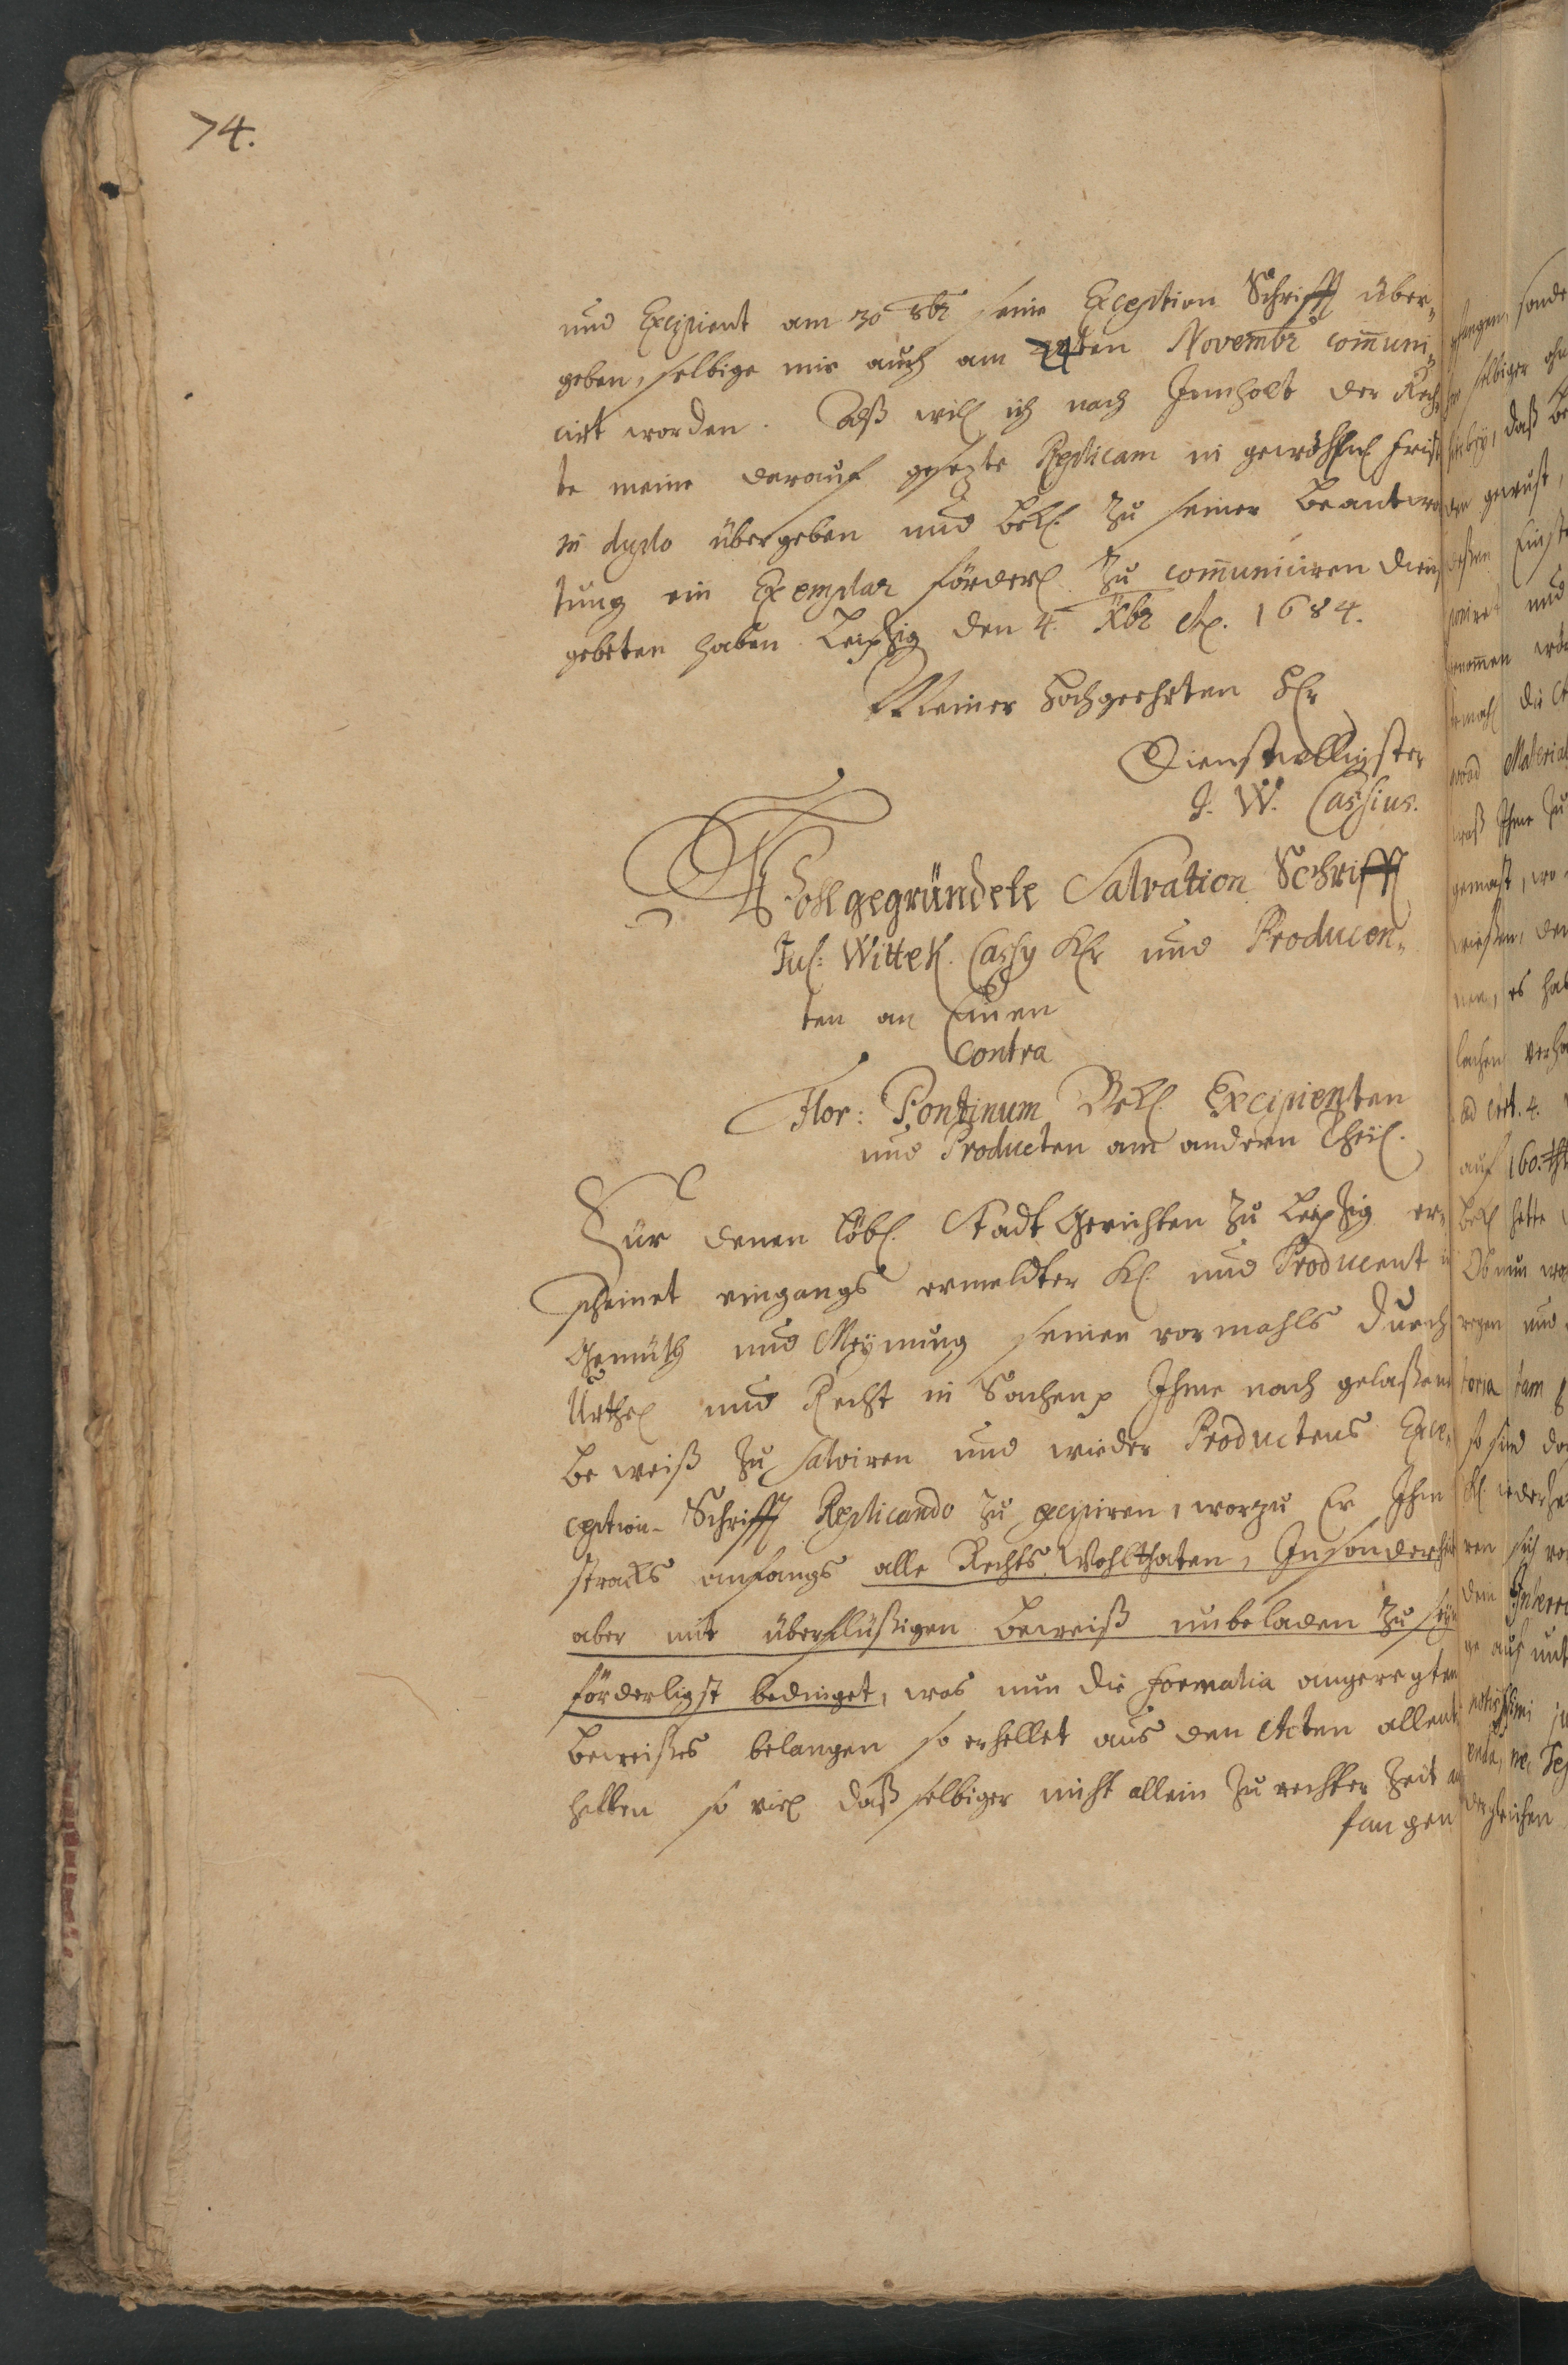 74.
und Excipient am 30 8br seine Exception Schrifft über„
geben, selbige mir auch am 24ten Novembr com̄uni„
cirt worden. Alß will ich nach Innholt der Rech„
te meine darauf gesezte Replicam in gewöhnl. Frist
in duplo übergeben und Bekl. zu seiner Beantwor
tung ein Exemplar förderl. zu com̄uniciren dienst
gebeten haben Leipzig den 4. Xbr Ao. 1684.
Meiner Hochgeehrten HEr
Dienstwilligster
J. W. Cassius.
Wohlgegründete Salvation Schrifft
Just: Wittek. Cassy Klr und Producen„
ten an Einen
Contra
Flor: Pontinum Bekl. Excipienten
und Producten am andern Theil.
Für denen löbl. Stadt Gerichten zu Leipzig er„
scheinet eingangs ermeldter Kl. und Producent in
Gemüth und Meynung seinen vormahls durch
Urthel und Recht in Sachen Ihme nach gelaßene
Beweiß zu salviren und wieder Productens Exce„
ception-Schrifft Replicando zu excipiren, worzu Er Ihm
stracks anfangs alle Rechts Wohlthaten, Insonderheit
aber mit überflüßigen Beweiß unbeladen zu seyn
förderligst bedinget, was nun die Formalia angeregten
Beweißes belangen so erhellet aus den Acten allent
halben so viel daß selbiger nicht allein zu rechter Zeit an
fangen